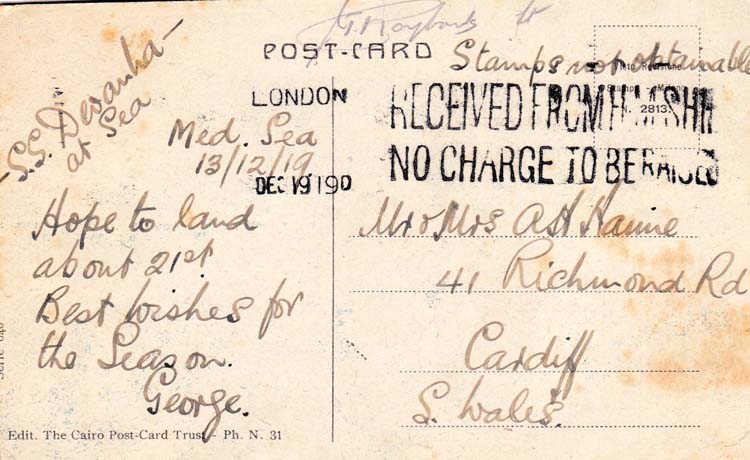 POST-CARD
Stamps not obtainable
S.S. Devanha
at Sea
LONDON
DEC 19 19
RECEIVED FROM H.M. SHIP
NO CHARGE TO BE RAISED
N. 2813
Med. Sea
13/12/19
Hope to land
about 21st.
Best wishes for
the Season.
George.
Mr & Mrs A H
41 Richmond Rd
Cardiff
S. Wales.
Edit. The Cairo Post-Card Trust - Ph. N. 31